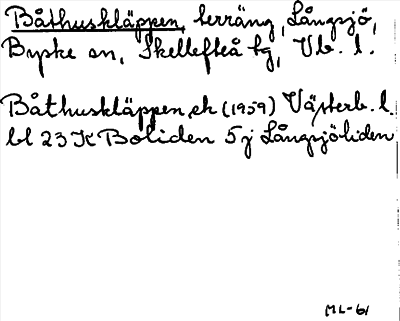 Båthuskläppen, terräng, Långsjö,
Byske sn, Skellefteå tg, Vb. l.
Båthuskläppen, ek (1959) Västerb. l.
bl 23 K Boliden 5 j Långsjöliden
ML-61